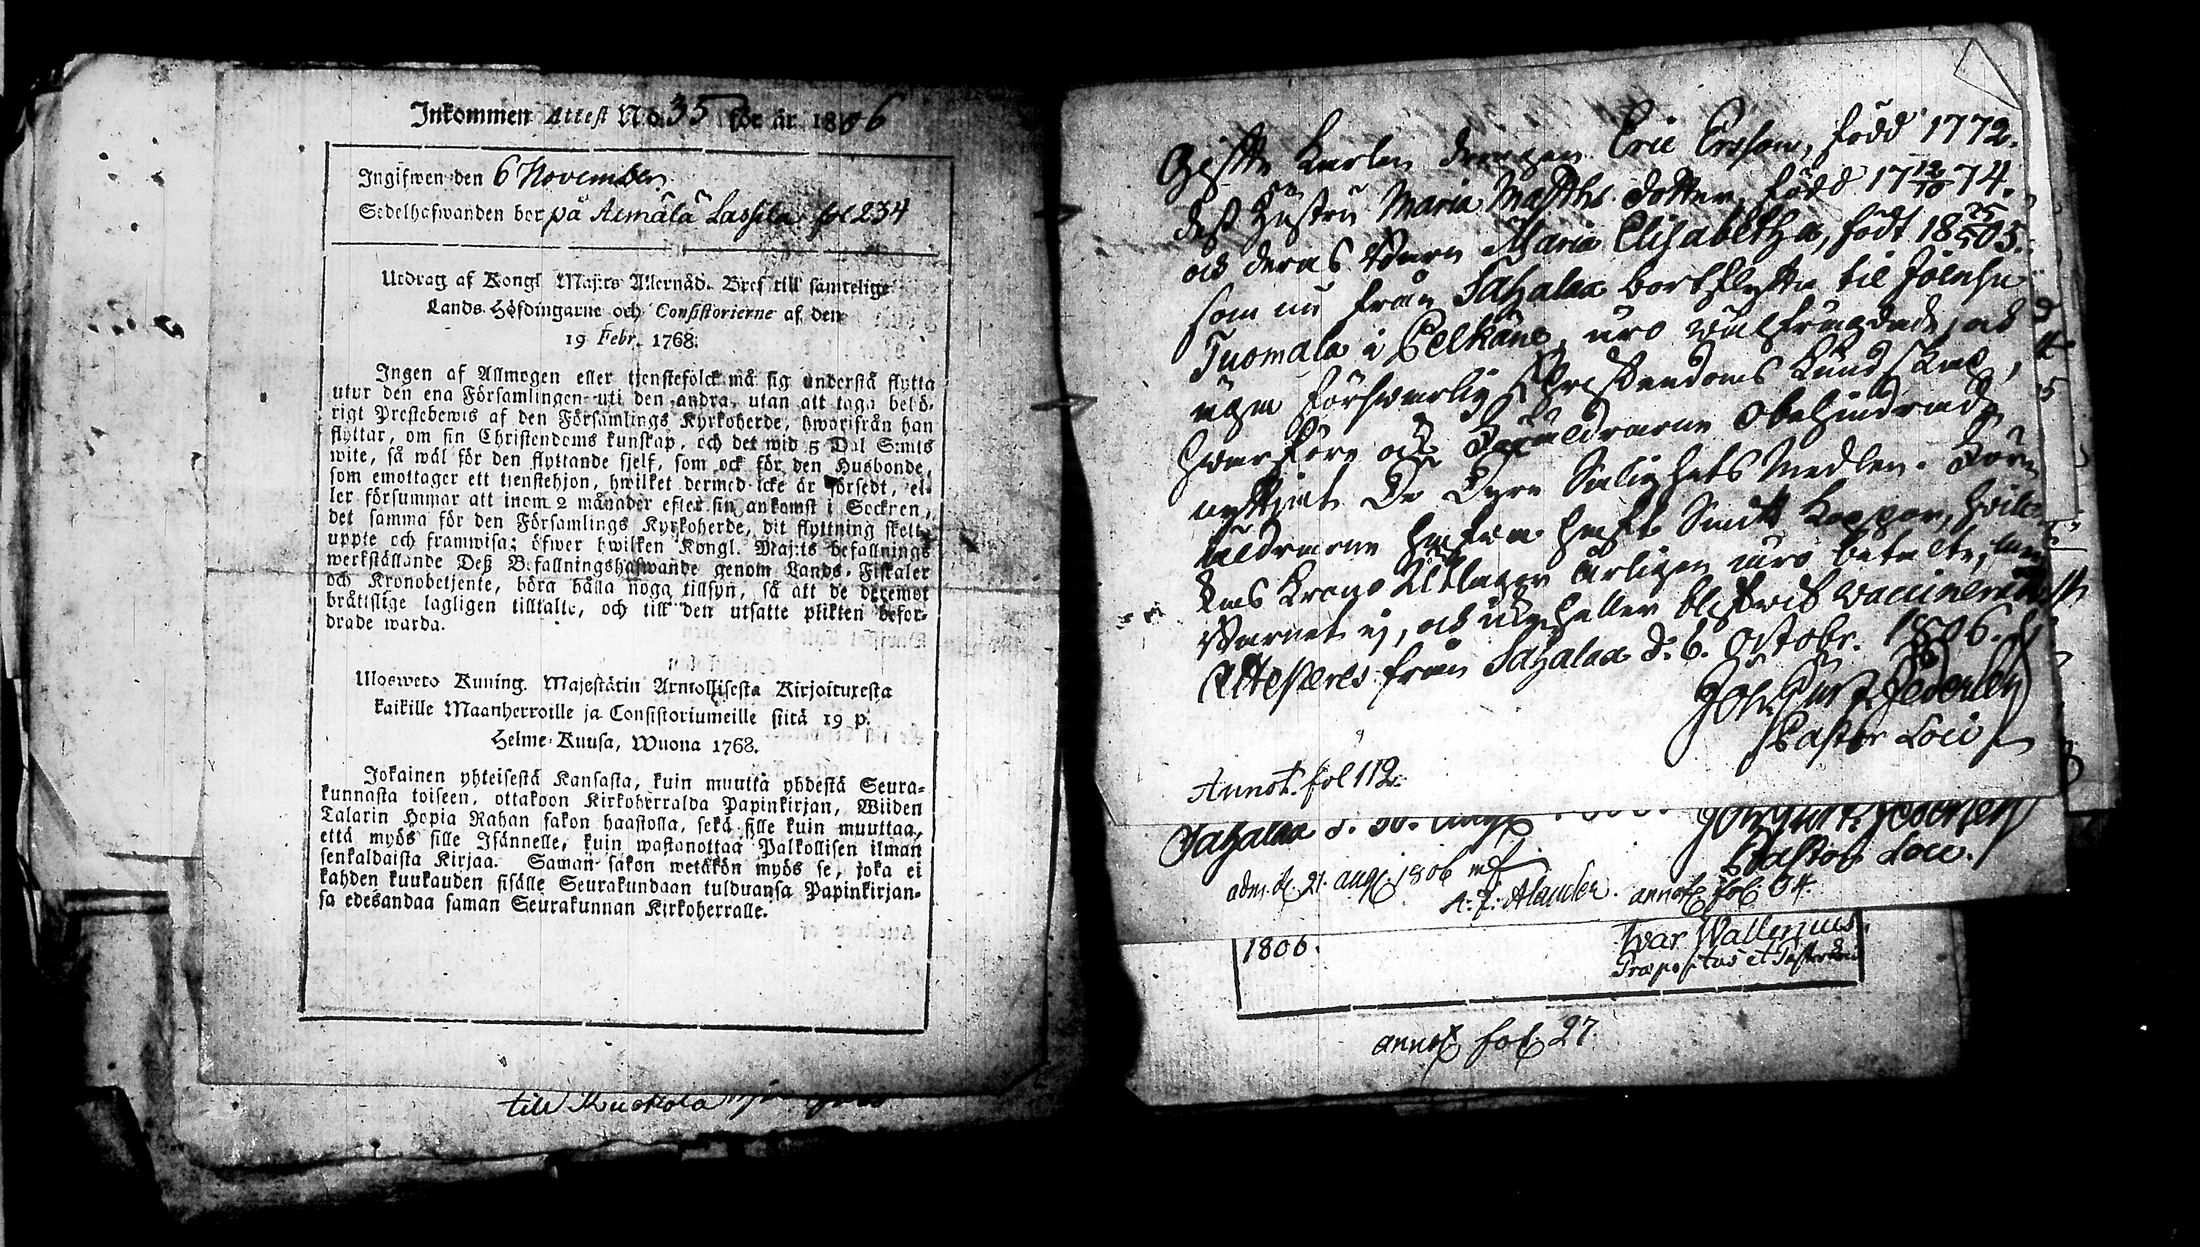 Inkommen Attest No 35 för år 1806
Ingifwen den 6 November
Sedelhafwanden bor på Aimälä Lassila fol 234
Utdrag af Kongl Maj:ts Allernåd. Bref till samtelige
Lands-Höfdingarne och Consistorierne af den
19 Febr. 1768.
Ingen af Allmogen eller tjenstefolck må sig understå flytta
utur den ena Församlingen uti den andra, utan att taga behö-
rigt Prestebewis af den Församlings Kyrkoherde, hwarifrån han
flyttar, om sin Christendoms kunskap, och det wid 5 Dal. S:mts
wite, så wäl för den flyttande sjelf, som ock för den Husbonde,
som emottager ett tjenstehjon, hwilket dermed icke är försedt, el-
ler försummar att inom 2 månader efter sin ankomst i Socknen,
det samma för den Församlings Kyrkoherde, dit flyttning skett,
uppte och framwisa; öfwer hwilken Kongl. Maj:ts befallnings
werkställande Deß Befallningshafwande genom Lands-Fiskaler
och Kronobetjente, böra hålla noga tillsyn, så att de deremot
bråttslige lagligen tilltalte, och till den utsatte plikten befor-
drade warda.
Ulosweto Kuning. Majestätin Armollisesta Kirjoituxesta
kaikille Maanherroille ja Consistoriumeille siitä 19 p.
Helme-Kuusa, Wuona 1768.
Jokainen yhteisestä Kansasta, kuin muutta yhdestä Seura-
kunnasta toiseen, ottakoon Kirkoherralda Papinkirjan, Wiiden
Talarin Hopia Rahan sakon haastolla, sekä sille kuin muuttaa,
että myös sille Isännelle, kuin wastanottaa Palkollisen ilman
senkaldaista Kirjaa. Saman sakon wetäkön myös se, joka ei
kahden kuukauden sisälle Seurakundaan tulduansa Papinkirjan-
sa edesandaa saman Seurakunnan Kirkoherralle.
till Kuckola
Gifte Karlen drengen Eric Ersson, född 1772.
deß Hustru Maria Matths dotter, född 17 12/10 74.
och deras Barn Maria Elisabetha, född 18 25/5 05.
som nu från Sahalax bortflyttar til
Tuomala i Pelkäne, äro wälfrägdade, och
äga förswarlig Christendoms Kundskap,
hwarföre och Föräldrarne obehindrade
nyttjat De Dyre Salighets Medlen. För-
äldrarne hafwa haft Smitt Koppor,
Krono Utlagor årligen äro betalte,
Barnet ej, och icke heller blifwit vaccinerat
Attesteres från Sahalax d. 6. Octobr. 1806.
Pastor Loci
Annot. fol 112.
Sahalax d. 30. Aug
Pastor Loci.
1806
A. J. Alander. annot fol. 64.
1806.
Iwar Wallenius.
Præpositus et Pastor
annot fol. 27.